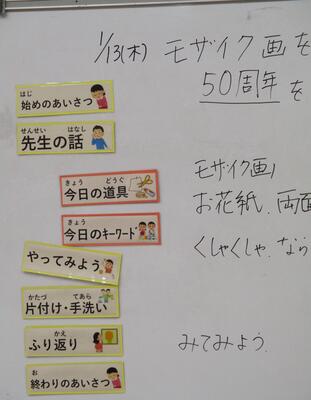 1/13(木) モザイク画を
50周年を
はじ
始めのあいさつ
せんせい はなし
先生の話
モザイク画
きょう どうぐ
今日の道具
お花紙、両面
きょう
今日のキーワード
くしゃくしゃ、なら
やってみよう
かたづ てあら
片付け・手洗い
かえ
ふり返り
みてみよう。
お
終わりのあいさつ